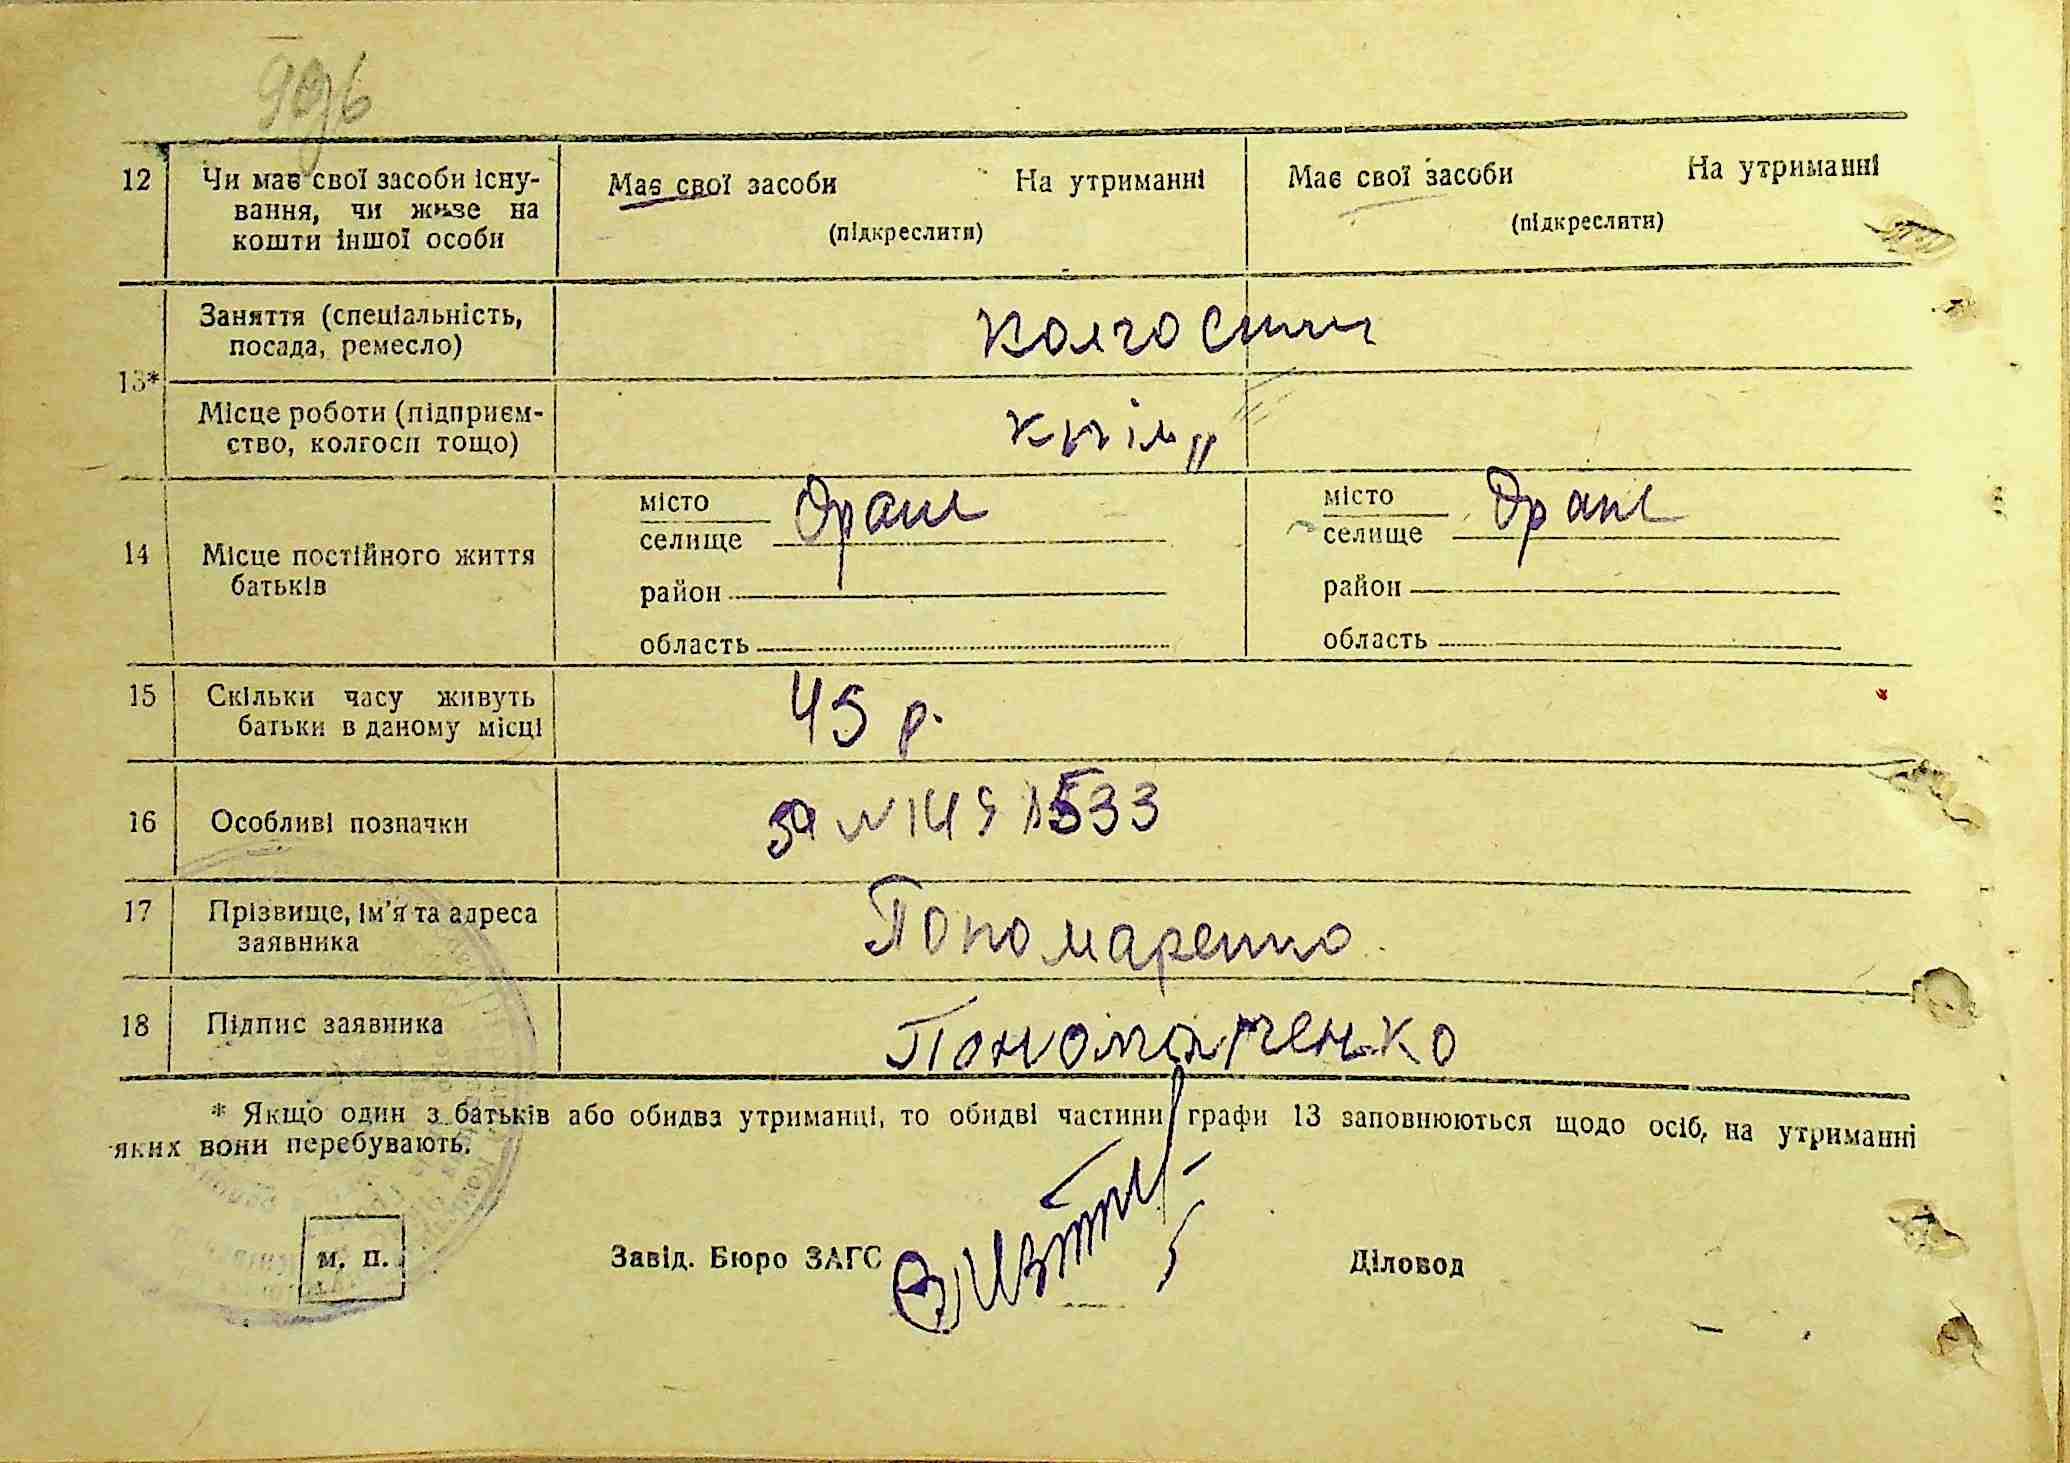 90
12 Чи має свої засоби існу- Має свої засоби На утриманні Має свої засоби На утриманні
вання, чи живе на (підкреслити) (підкреслити)
кошти іншої особи
Заняття (спеціальність,
посада, ремесло) колгоспник
13*
Місце роботи (підприєм-
ство, колгосп тощо) кнім"
14 Місце постійного життя
батьків
місто Драні місто Драні
селище селище
район район
область область
15 Скільки часу живуть 45 р.
батьки в даному місці
16 Особливі позначки за № 149 1533
17 Прізвище, ім'я та адреса Пономаренко
заявника
18 Підпис заявника Пономаренко
* Якщо один з батьків або обидва утриманці, то обидві частини графи 13 заповнюються щодо осіб, на утриманні
яких вони перебувають.
м. п. Завід. Бюро ЗАГС Діловод